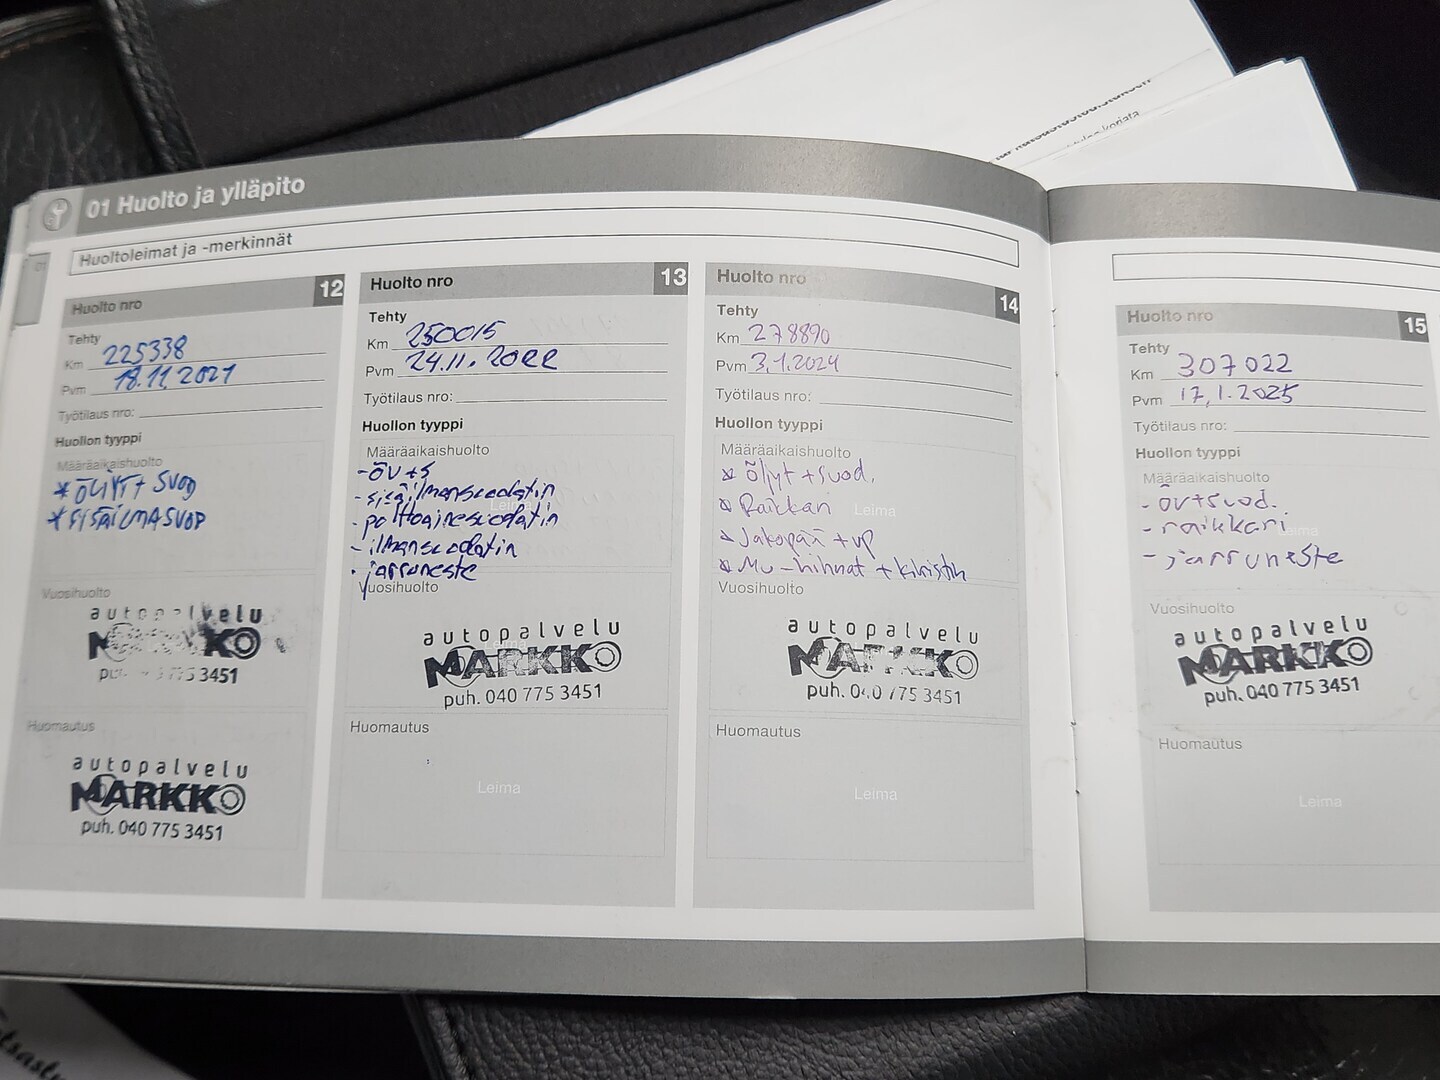 01 Huolto ja ylläpito
Huoltoleimat ja -merkinnät
01
Huolto nro 12
Tehty
Km 225338
Pvm 18.11.2021
Työtilaus nro:
Huollon tyyppi
Määräaikaishuolto
* ÖLJYT + SUOD
* SISÄILMASUOD
Vuosihuolto
autopalvelu
MARKKO
3451
Huomautus
autopalvelu
MARKKO
puh. 040 775 3451
Huolto nro 13
Tehty
Km 250015
Pvm 24.11.2022
Työtilaus nro:
Huollon tyyppi
Määräaikaishuolto
- öv+s
- sisäilmansuodatin
Leima
- polttoainesuodatin
- ilmansuodatin
- jarruneste
Vuosihuolto
autopalvelu
MARKKO
puh. 040 775 3451
Huomautus
Leima
Huolto nro 14
Tehty
Km 278890
Pvm 3.1.2024
Työtilaus nro:
Huollon tyyppi
Määräaikaishuolto
* Öljyt + suod.
* Raikkari
Leima
* Jakopää + vp
* Mu-hihnat + kiristin
Vuosihuolto
autopalvelu
MARKKO
puh. 040 775 3451
Huomautus
Leima
Huolto nro 15
Tehty
Km 307022
Pvm 17.1.2025
Työtilaus nro:
Huollon tyyppi
Määräaikaishuolto
- öv+suod.
- raikkari
Leima
- jarruneste
Vuosihuolto
autopalvelu
MARKKO
puh. 040 775 3451
Huomautus
Leima